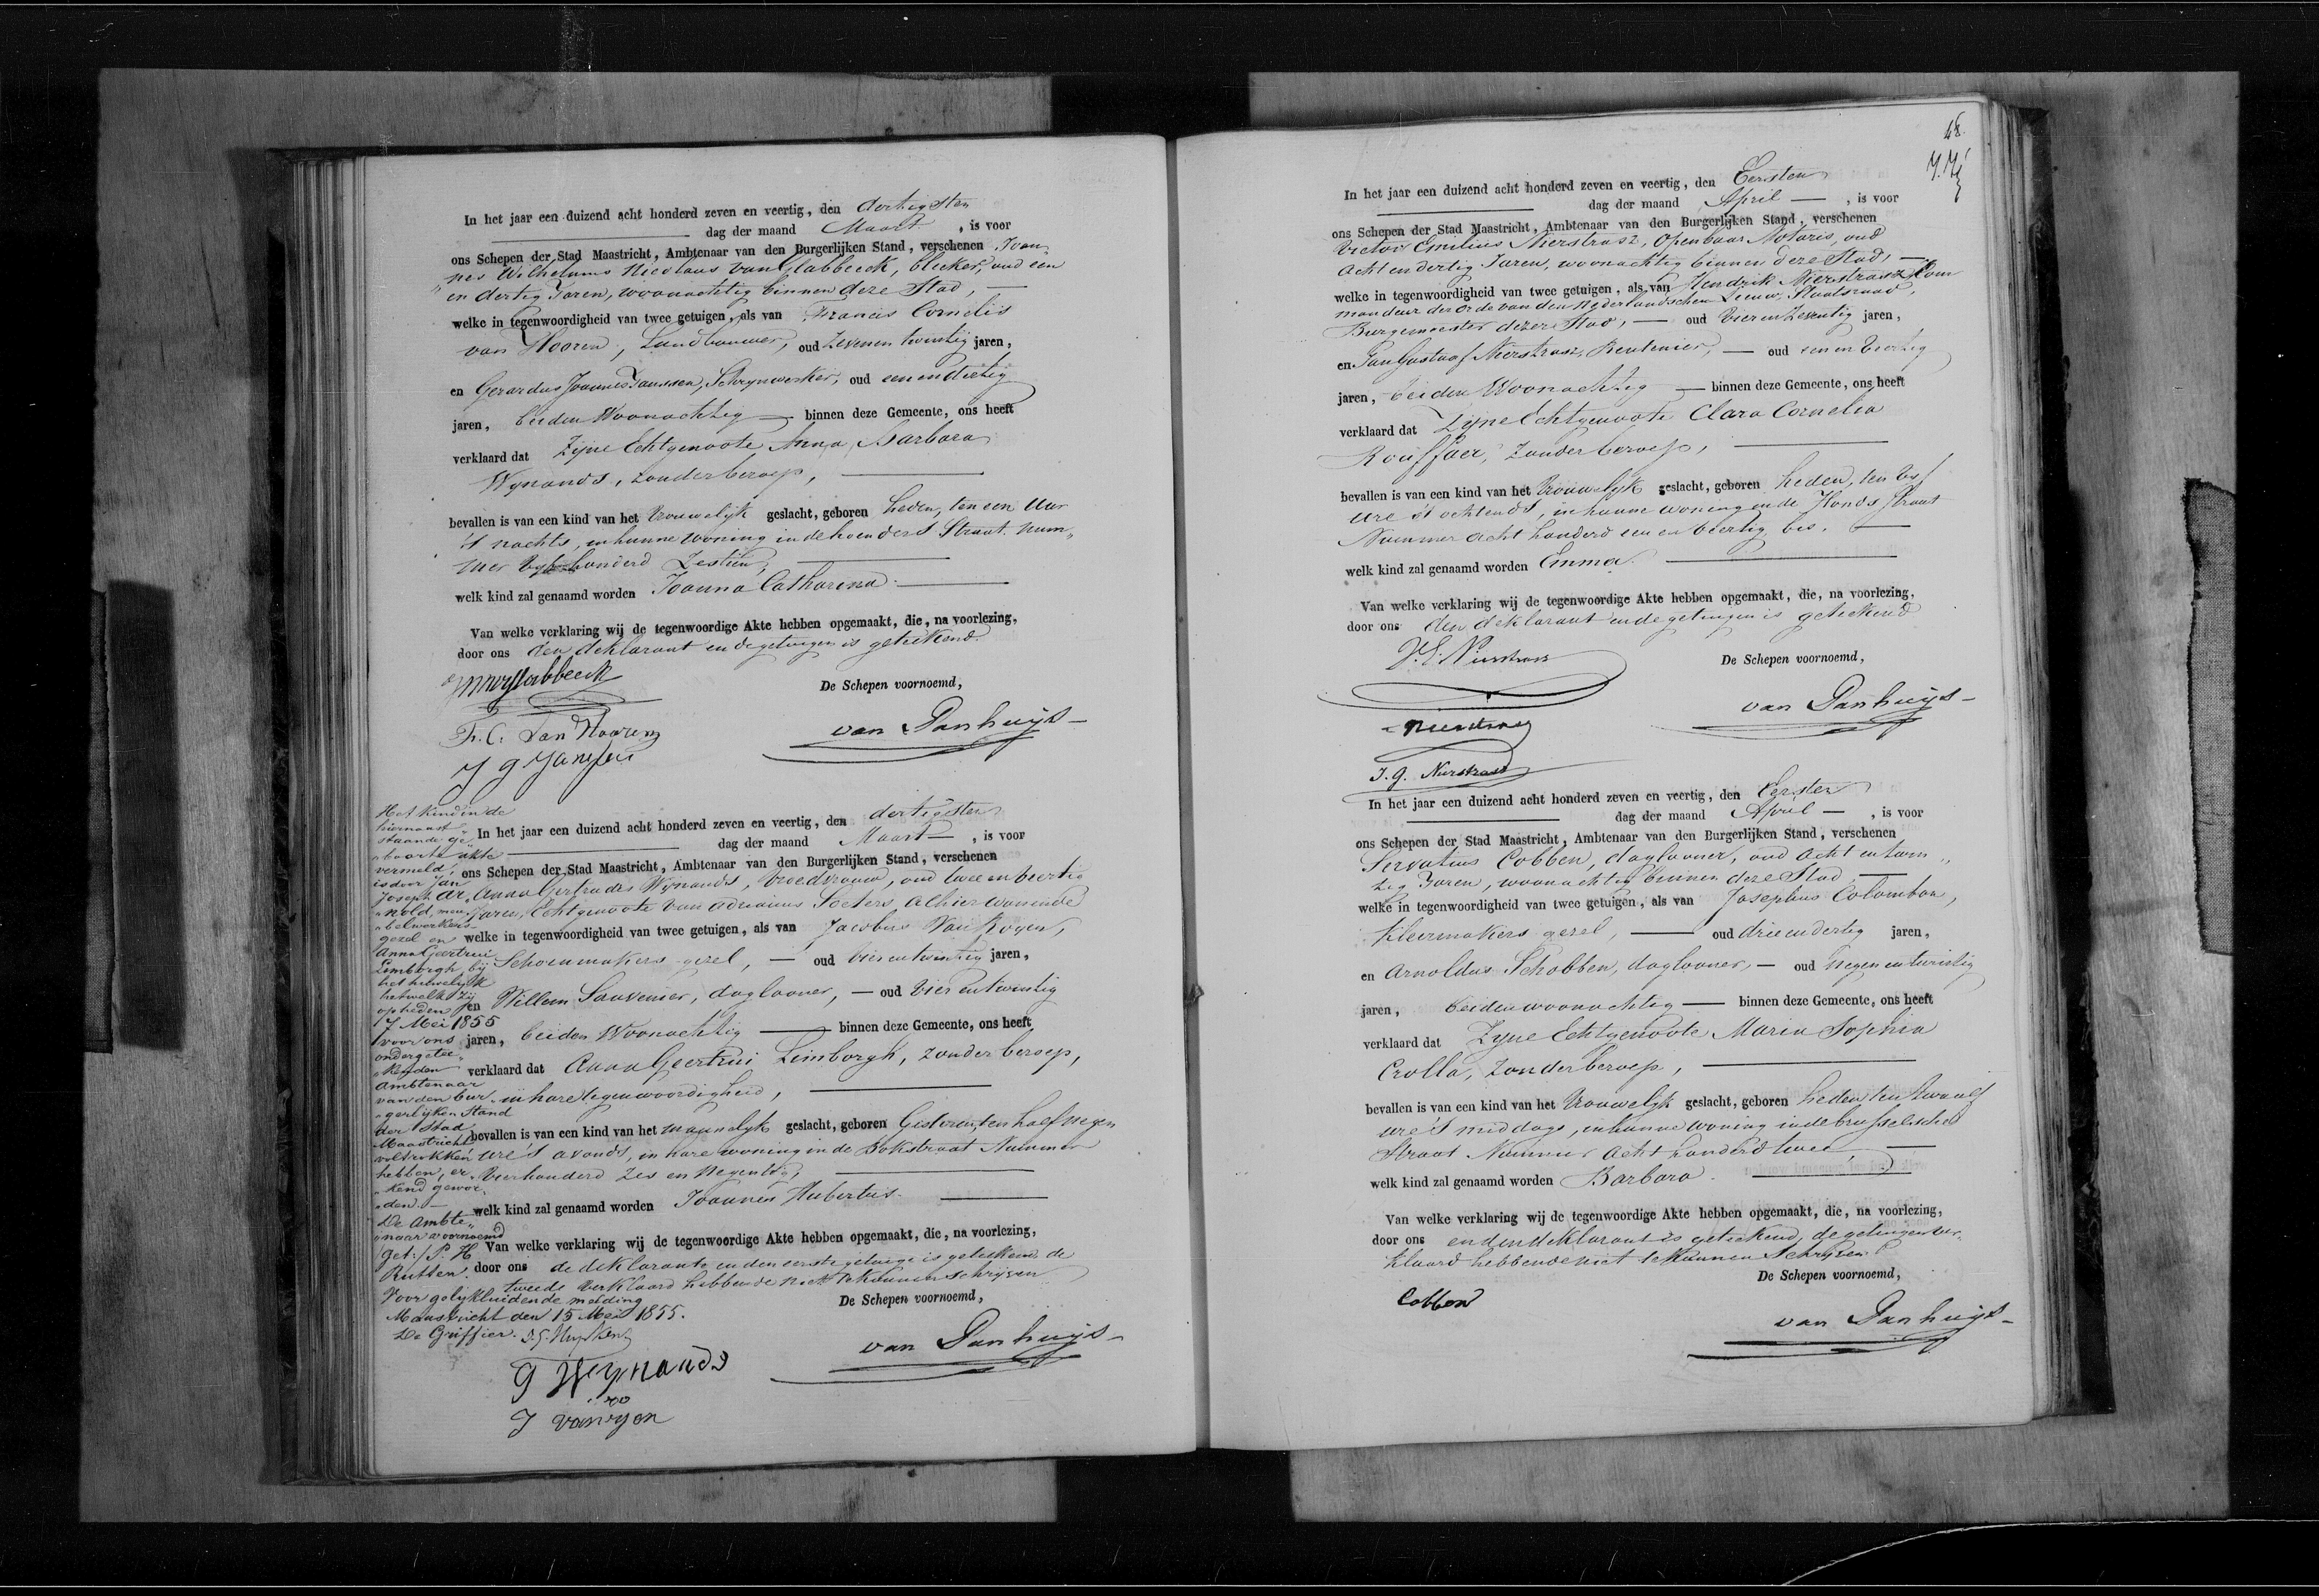 In het jaar een duizend acht honderd zeven en veertig, den dertigsten
dag der maand Maart, is voor
ons Schepen der Stad Maastricht, Ambtenaar van den Burgerlijken Stand, verschenen Joan„
nes Wilhelmus Nicolaus van Glabbeeck, bleeker, oud een
„en dertig Jaren, woonachtig binnen deze Stad, —
welke in tegenwoordigheid van twee getuigen, als van Francis Cornelis
van Hooren, Landbouwer, oud Zeven en twintig jaren,
en Gerardus Joannes Janssen, Schrynwerker, oud een en dertig
jaren, beiden Woonachtig — binnen deze Gemeente, ons heeft
verklaard dat Zyne Echtgenoote Anna Barbara
Wynands, zonder beroep, —
bevallen is van een kind van het Vrouwelyk geslacht, geboren heden, ten een Uur
's nachts, in hunne woning in de hoenders Straat num„
mer honderd Zestien, —
welk kind zal genaamd worden Joanna Catharina. —
Van welke verklaring wij de tegenwoordige Akte hebben opgemaakt, die, na voorlezing,
door ons den deklarant en de getuigen is geteekend.
De Schepen voornoemd,
van Panhuys
Fr. C. Van Hooren
J G Janssen
Het kind in de
hiernaast„
staande ge„
„boorte akte
vermeld,
is door Jan
Joseph Ar„
„nold, meu„
„belwerkers-
gezel en
Anna Geertrui
Limborgh, bij
het huwelijk
hetwelk zij
op heden
7 Mei 1855
voor ons
ondergetee„
„kenden
Ambtenaar
van den bur„
„gerlijken Stand
der Stad
Maastricht
voltrokken
hebben, er„
„kend gewor„
„den. —
De Ambte„
„naar voornoemd
Get:/ P. H.
Rutten.
Voor gelykluidende melding
Maastricht den 15 Mei 1855.
De Griffier.
In het jaar een duizend acht honderd zeven en veertig, den dertigsten
dag der maand Maart —, is voor
ons Schepen der Stad Maastricht, Ambtenaar van den Burgerlijken Stand, verschenen
Anna Gertrudis Wynands, Vroedvrouw, oud twee en veertig
Jaren, Echtgenoote van Adrianus Soeters, Alhier wonende
welke in tegenwoordigheid van twee getuigen, als van Jacobus Van Royen,
Schoenmakers gezel, — oud vier en twintig jaren,
en Willem Sauvenier, daglooner, — oud Vier en twintig
jaren, beiden Woonachtig — binnen deze Gemeente, ons heeft
verklaard dat Anna Geertrui Limborgh, zonder beroep,
in hare tegenwoordigheid, —
bevallen is van een kind van het mannelyk geslacht, geboren Gisteren, ten half negen
ure 's avonds, in hare woning in de Bokstraat Nummer
Vierhonderd Zes en Negentig, —
welk kind zal genaamd worden Joannes Hubertus. —
Van welke verklaring wij de tegenwoordige Akte hebben opgemaakt, die, na voorlezing,
door ons de deklarante en den eerste getuige is geteekend de
tweede verklaard hebbende niet te kunnen schryven
De Schepen voornoemd,
van Panhuys
G Weynands
J van oyen
48.
In het jaar een duizend acht honderd zeven en veertig, den Eersten
dag der maand April —, is voor
ons Schepen der Stad Maastricht, Ambtenaar van den Burgerlijken Stand, verschenen
Victor Emilius Nierstrasz, Openbaar Notaris, oud
Acht en dertig Jaren, woonachtig binnen deze Stad, —
welke in tegenwoordigheid van twee getuigen, als van Hendrik Nierstrasz Com
mandeur der Orde van den Nederlandschen Leeuw, Staatsraad,
Burgemeester dezer Stad, — oud Vier en Zeventig jaren,
en Jan Gustaaf Nierstrasz, Rentenier, — oud een en Veertig
jaren, beiden Woonachtig — binnen deze Gemeente, ons heeft
verklaard dat Zyne Echtgenoote Clara Cornelia
Rouffaer, Zonder beroep, —
bevallen is van een kind van het Vrouwelyk geslacht, geboren heden, ten vyf
ure 's ochtends, in hunne woning in de Honds Straat
Nummer acht honderd een en veertig bis. —
welk kind zal genaamd worden Emma. —
Van welke verklaring wij de tegenwoordige Akte hebben opgemaakt, die, na voorlezing,
door ons den deklarant en de getuigen is geteekend
De Schepen voornoemd,
V. E. Nierstrasz
van Panhuys
Nierstrasz
J. G. Nierstrasz
In het jaar een duizend acht honderd zeven en veertig, den Eersten
dag der maand April —, is voor
ons Schepen der Stad Maastricht, Ambtenaar van den Burgerlijken Stand, verschenen
Servatius Cobben, daglooner, oud Acht en twin„
tig Jaren, woonachtig binnen deze Stad, —
welke in tegenwoordigheid van twee getuigen, als van Josephus Colombon,
Kleermakers gezel, — oud drie en dertig jaren,
en Arnoldus Schobben, daglooner, — oud Negen en twintig
jaren, beiden woonachtig — binnen deze Gemeente, ons heeft
verklaard dat Zyne Echtgenoote Maria Sophia
Crolla, Zonder beroep, —
bevallen is van een kind van het Vrouwelyk geslacht, geboren heden ten twaalf
ure 's middags, in hunne woning in de brusselsche
Straat Nummer Acht honderd twee, —
welk kind zal genaamd worden Barbara. —
Van welke verklaring wij de tegenwoordige Akte hebben opgemaakt, die, na voorlezing,
door ons en den deklarant is geteekend, de getuigen ver„
klaard hebbende niet te kunnen Schryven.
De Schepen voornoemd,
Cobben
van Panhuys